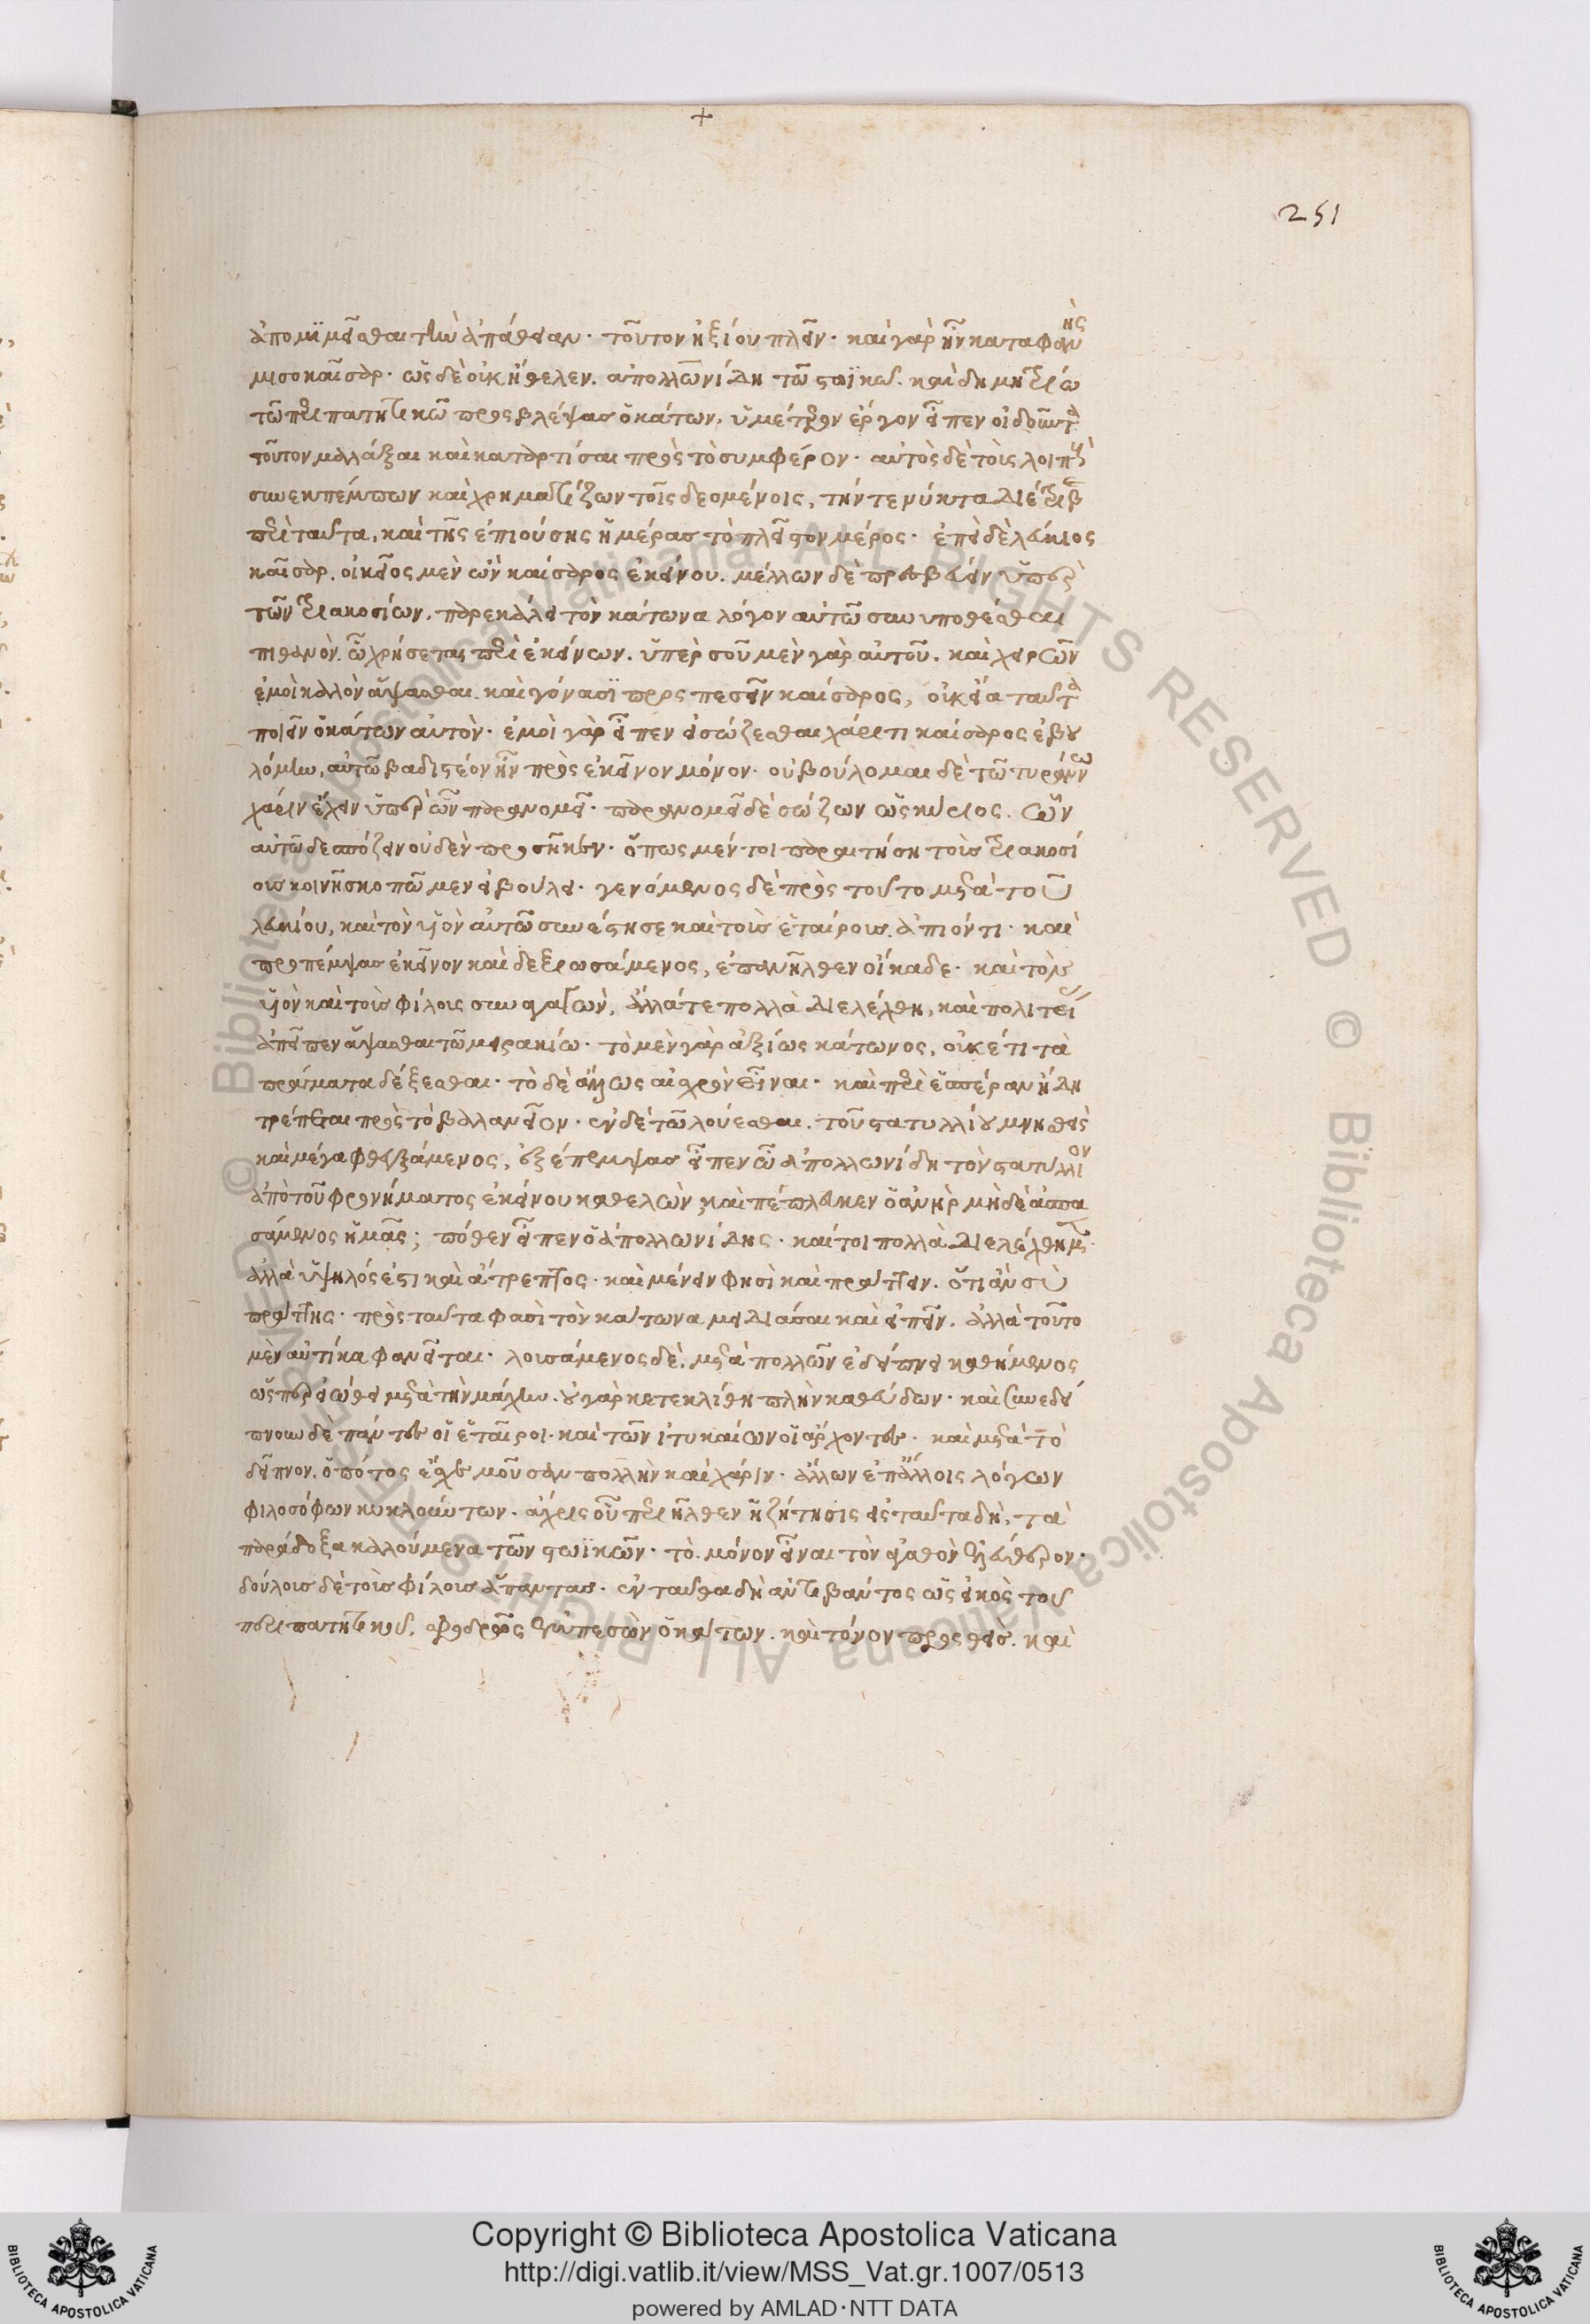 +
251
ἀπομιμεῖσθαι τὴν ἀπάθειαν· τοῦτον ἠξίου πλεῖν· καὶ γὰρ ἦν καταφανὴς
μισοκαῖσαρ· ὡς δὲ οὐκ ἤθελεν. ἀπολλωνίδη τῶ στωϊκῶ. καὶ δημητρίω
τῶ περιπατητικῶ προσβλέψας ὁ κάτων, ὑμέτερον ἔργον εἶπεν οἰδοῦντα
τοῦτον μαλάξαι καὶ καταρτίσαι πρὸς τὸ συμφέρον· αὐτὸς δὲ τοὺς λοιποὺς
συνεκπέμπων καὶ χρηματίζων τοῖς δεομένοις, τήν τε νύκτα διέτριβε
περὶ ταῦτα, καὶ τῆς ἐπιούσης ἡμέρας τὸ πλεῖστον μέρος· ἐπεὶ δὲ λεύκιος
καῖσαρ. οἰκεῖος μὲν ὢν καίσαρος ἐκείνου. μέλλων δὲ πρεσβεύειν ὑπὲρ
τῶν τριακοσίων. παρεκάλει τὸν κάτωνα λόγον αὐτῶ συνυποθέσθαι
πιθανὸν. ὧ χρήσεται περὶ ἐκείνων. ὑπὲρ σοῦ μὲν γὰρ αὐτοῦ. καὶ χειρῶν
ἐμοὶ καλὸν ἅψασθαι. καὶ γόνασι προσπεσεῖν καίσαρος, οὐκ εἴα ταῦτα
ποιεῖν ὁ κάτων αὐτὸν· ἐμοὶ γὰρ εἶπεν εἰ σώζεσθαι χάριτι καίσαρος ἐβου
λόμην, αὐτῶ βαδιστέον ἦν πρὸς ἐκεῖνον μόνον· οὐ βούλομαι δὲ τῶ τυράννω
χάριν ἔχειν ὑπὲρ ὧν παρανομεῖ· παρανομεῖ δὲ σώζων ὡς κύριος. ὧν
αὐτῶ δεσπόζειν οὐδὲν προσῆκεν· ὅπως μέν τοι παραιτήση τοὺς τριακοσί
ους κοινῆ σκοπῶμεν εἰ βούλει· γενόμενος δὲ πρὸς τούτο μετὰ τοῦ
λευκίου, καὶ τὸν υἱὸν αὐτῶ συνέστησε καὶ τοὺς ἑταίρους. ἀπιόντι· καὶ
προπέμψας ἐκεῖνον καὶ δεξιωσάμενος, ἐπανῆλθεν οἴκαδε· καὶ τὸν
υἱὸν καὶ τοὺς φίλους συναγαγὼν, ἄλλά τε πολλὰ διελέχθη, καὶ πολιτείας
ἀπεῖπεν ἅψασθαι τῶ μειρακίω· τὸ μὲν γὰρ ἀξίως κάτωνος, οὐκέτι τὰ
πράγματα δέξεσθαι· τὸ δὲ ἄλλως αἰσχρὸν εἶναι· καὶ περὶ ἑσπέραν ἤδη
τρέπεται πρὸς τὸ βαλανεῖον· ἐν δὲ τῶ λούεσθαι. τοῦ στατυλλίου μνησθεὶς
καὶ μέγα φθεγξάμενος, ἐξέπεμψας εἶπεν ὦ ἀπολλωνίδη τὸν στατύλλιον
ἀπὸ τοῦ φρονήματος ἐκείνου καθελὼν καὶ πέπλευκεν ὁ ἀνὴρ μηδὲ ἀσπα
σάμενος ἡμᾶς; πόθεν εἶπεν ὁ ἀπολλωνίδης· καίτοι πολλὰ διελέχθημεν·
ἀλλὰ ὑψηλός ἐστι καὶ ἄτρεπτος· καὶ μένειν φησὶ καὶ πράττειν. ὅτι ἂν σὺ
πράττης· πρὸς ταῦτα φασὶ τὸν κάτωνα μειδιάσαι καὶ εἰπεῖν. ἀλλὰ τοῦτο
μὲν αὐτίκα φανεῖται· λουσάμενος δὲ, μετὰ πολλῶν ἐδείπνει καθήμενος
ὥσπερ εἰώθει μετὰ τὴν μάχην. οὐ γὰρ κατεκλίθη πλὴν καθεύδων· καὶ συνεδεί
πνουν δὲ πάντες οἱ ἑταῖροι· καὶ τῶν ἰτυκαίων οἱ ἄρχοντες· καὶ μετὰ τὸ
δεῖπνον. ὁ πότος ἔσχε μοῦσαν πολλὴν καὶ χάριν· ἄλλων ἐπ' ἄλλοις λόγων
φιλοσόφων κυκλούντων· ἄχρις οὗ περιῆλθεν ἡ ζήτησις εἰς ταῦτα δὴ, τὰ
παράδοξα καλούμενα τῶν στωϊκῶν· τὸ μόνον εἶναι τὸν ἀγαθὸν ἐλεύθερον·
δούλους δὲ τοὺς φίλους ἅπαντας· ἐνταῦθα δὴ ἀντιβάντος ὡς εἰκὸς τοῦ
περιπατητικοῦ. σφοδρῶς ἐμπεσὼν ὁ κάτων. καὶ τόνον προσθεὶς. καὶ
Copyright © Biblioteca Apostolica Vaticana
http://digi.vatlib.it/view/MSS_Vat.gr.1007/0513
powered by AMLAD·NTT DATA
BIBLIOTECA APOSTOLICA VATICANA
BIBLIOTECA APOSTOLICA VATICANA